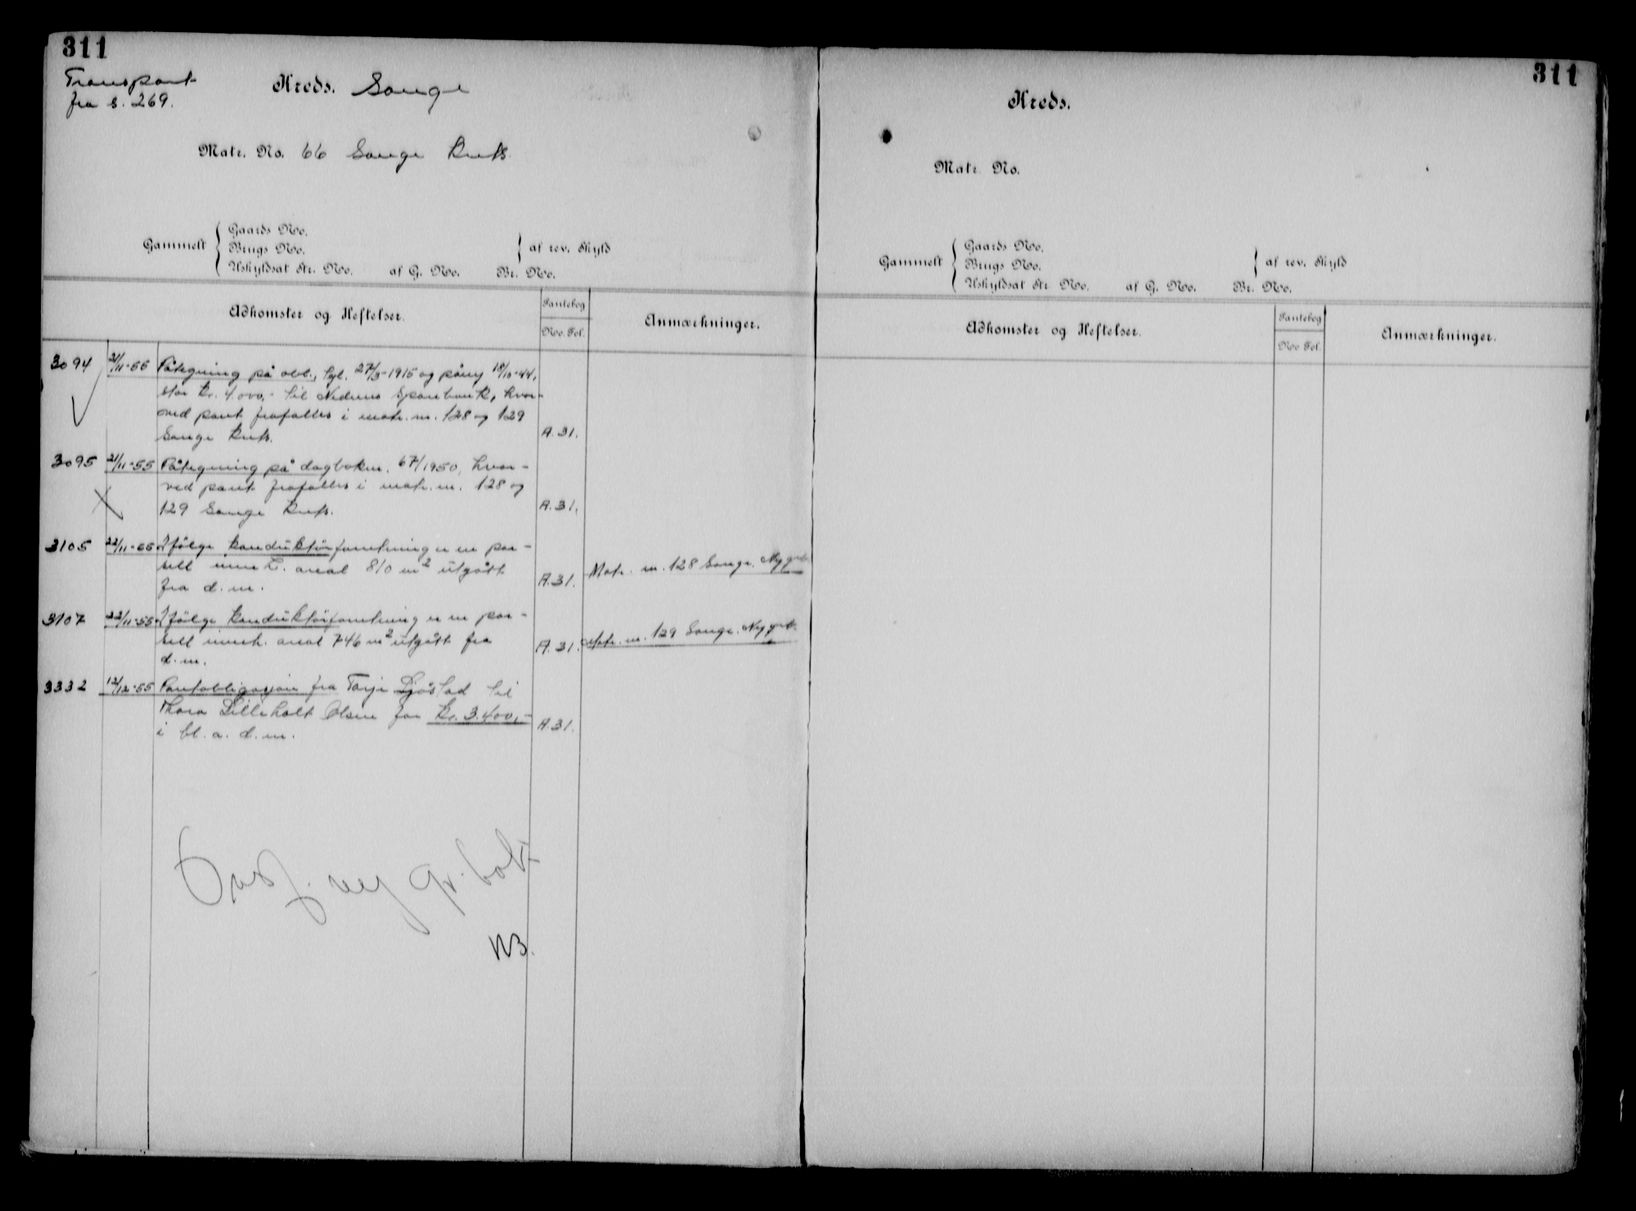 311
Transport
fra s. 269.
Kreds. Songe
Matr. No. 66 Songe
Gammelt
Gaards No.
Brugs No.
Uskyldsat Str. No. af G. No. Br. No.
af rev. Skyld
Adkomster og Heftelser.
Pantebog
No. Fol.
Anmærkninger.
3094 21/11-55 Påtegning på obl., tgl. 27/3-1915 og påny 18/10-44,
stor kr. 4000,- til Nedenes Sparebank, hvor-
ved pant frafalles i matr. nr. 128 og 129
Songe A.31.
3095 21/11-55 Påtegning på dagboknr. 67/1950, hvor-
ved pant frafalles i matr. nr. 128 og
129 Songe A.31.
3105 22/11-55 Ifølge konduktørforretning er en par-
sell areal 810 m² utgått
fra d.m. A.31. Matr. nr. 128 Songe. Ny grb.
3107 22/11-55 Ifølge konduktørforretning er en par-
sell areal 746 m² utgått fra
d.m. A.31. Matr. nr. 129 Songe. Ny grb.
3332 12/12-55 Pantobligasjon fra Tarje til
Thora Lilleholt Olsen for kr. 3.400,-
i bl. a. d.m. A.31.
Overf. ny gr. bok
NB.
311
Kreds.
Matr. No.
Gammelt
Gaards No.
Brugs No.
Uskyldsat Str. No. af G. No. Br. No.
af rev. Skyld
Adkomster og Heftelser.
Pantebog
No. Fol.
Anmærkninger.